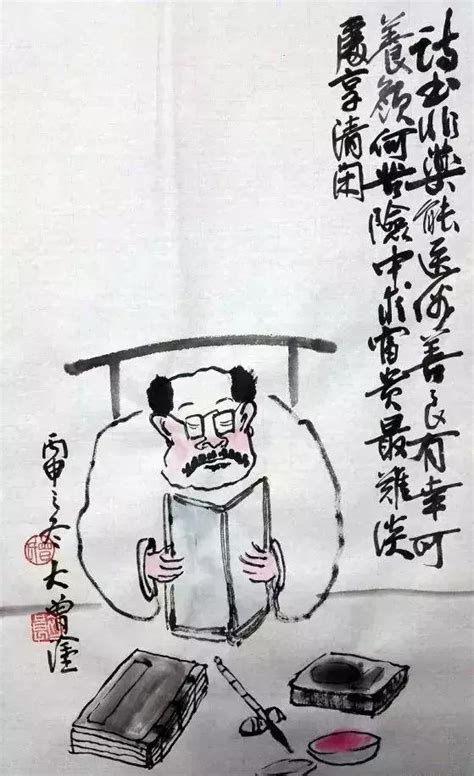 詩书非藥能医俗善良有幸可
養颜何苦險中求富贵最難淡
處享清闲
丙申之冬大曾塗